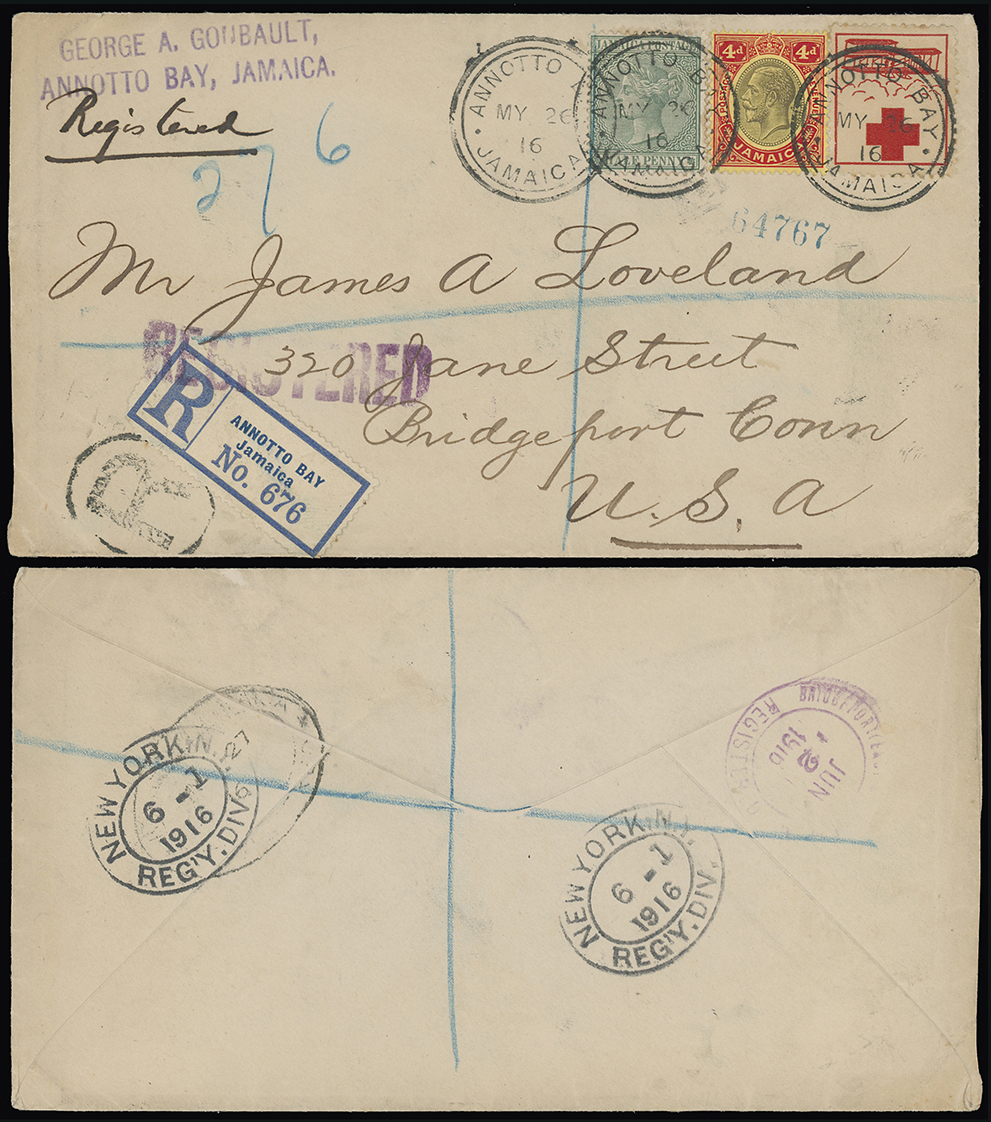 GEORGE A. GOUBAULT,
ANNOTTO BAY, JAMAICA.
Registered
276
ANNOTTO
MY 26
16
JAMAICA
JAMAICA POSTAGE
ANNOTTO BAY
MY 26
16
JAMAICA
PENNY
4d 4d
POSTAGE
JAMAICA
ANNOTTO BAY
MY 26
16
JAMAICA
64767
Mr James A Loveland
REGISTERED
320 Jane Street
Bridgeport Conn
U.S.A
R
ANNOTTO BAY
Jamaica
No. 676
R
NEW YORK, N.Y.
6-1
1916
REG'Y. DIV.
27
NEW YORK, N.Y.
6-1
1916
REG'Y. DIV.
BRIDGEPORT
REGISTERED
JUN
2
1916